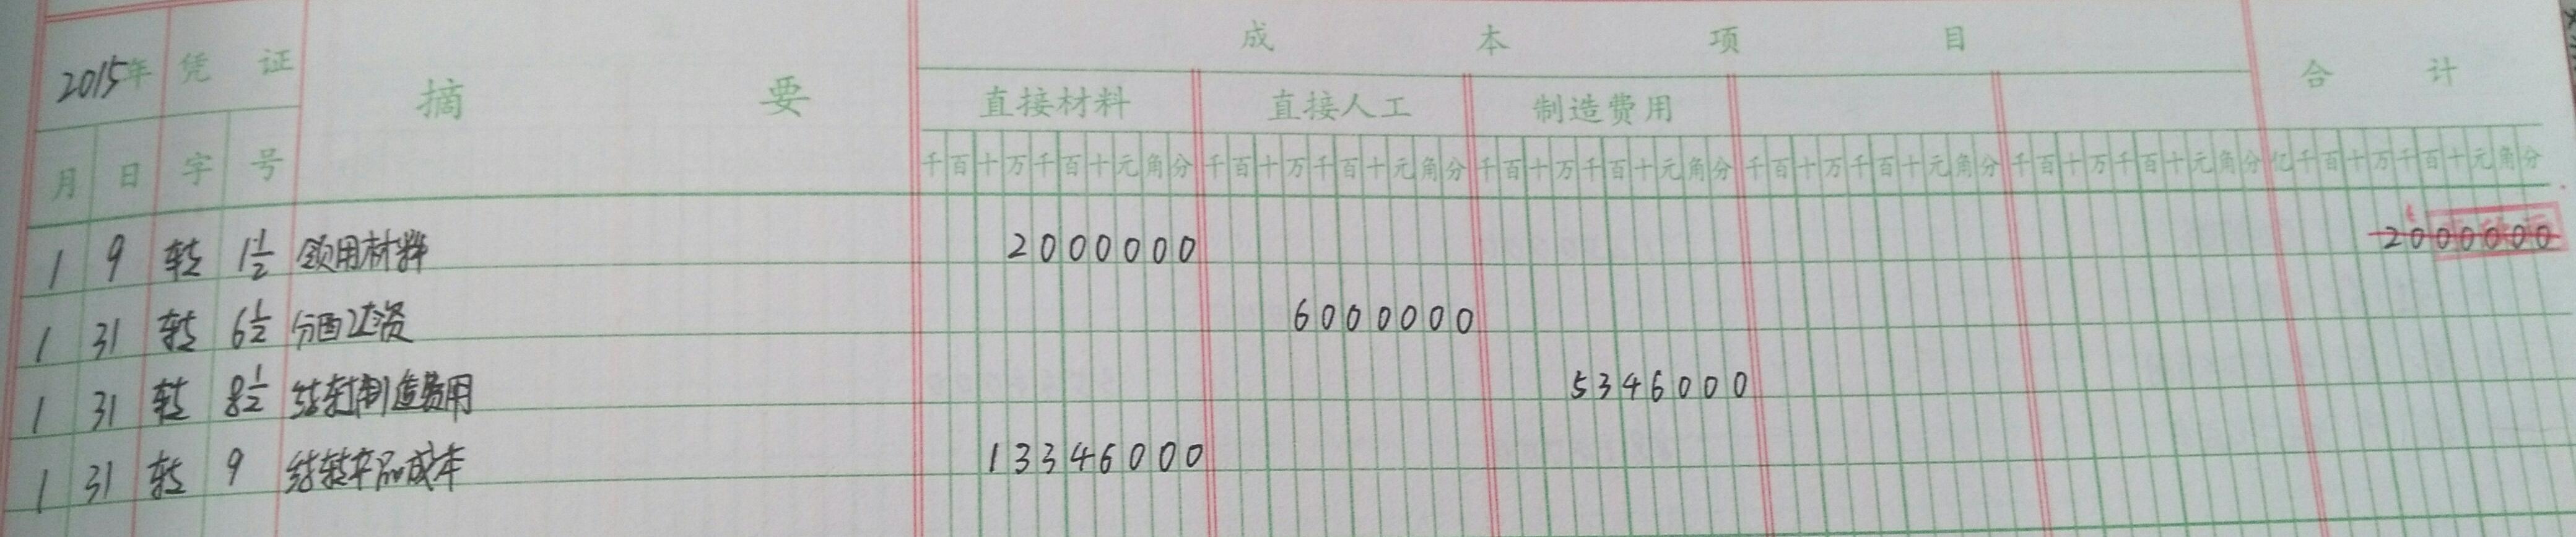 成 本 项 目
2015年 凭 证 摘 要 合 计
直接材料 直接人工 制造费用
月 日 字 号 千百十万千百十元角分 千百十万千百十元角分 千百十万千百十元角分 千百十万千百十元角分 千百十万千百十元角分 亿千百十万千百十元角分
1 9 转 1½ 领用材料 2000000 2000000
1 31 转 6½ 分配工资 6000000
1 31 转 8½ 结转制造费用 5346000
1 31 转 9 结转产品成本 13346000